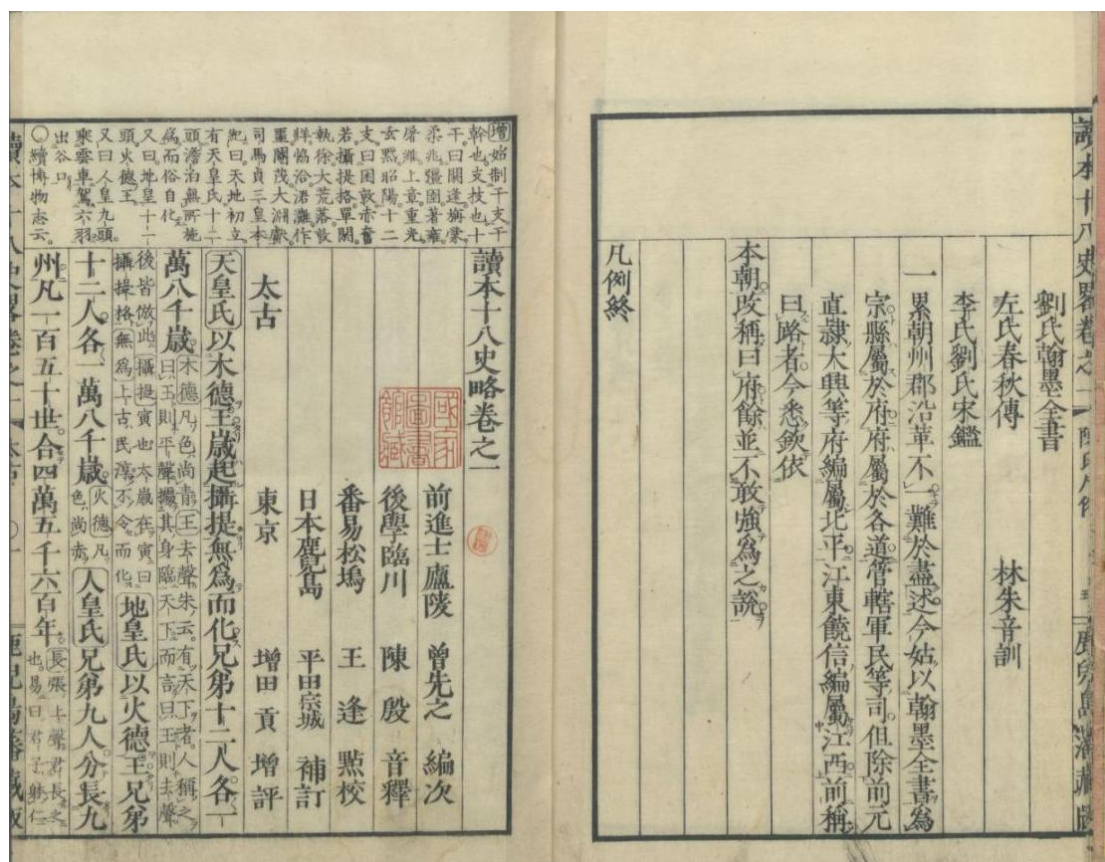 劉氏翰墨全書
左氏春秋傳　林朱音訓
李氏劉氏宋鑑
一累朝州郡沿革不一難於盡述今姑以翰墨全書爲
宗縣屬於府府屬於各道管轄軍民等司但除前元
直隷大興等府編屬北平江東饒信編屬江西前稱
曰路者今悉欽依
本朝改稱曰府餘並不敢強爲之說
凡例終
增始制干支干
幹也支枝也十
干曰閼逢旃蒙
柔兆彊圉著雍
屠維上章重光
玄黓昭陽十二
支曰困敦赤奮
若攝提格單閼
執徐大荒落敦
牂協洽涒灘作
噩閹茂大淵獻
司馬貞三皇本
紀曰天地初立
有天皇氏十二
頭澹泊無所施
爲而俗自化
又曰地皇十一
頭火德王
又曰人皇九頭
乘雲車駕六羽
出谷口
○續博物志云
讀本十八史略卷之一
前進士廬陵　曾先之　編次
後學臨川　陳殷　音釋
番易松塢　王逢　點校
日本鹿兒島　平田宗城　補訂
東京　增田貢　增評
國家圖書館藏
太古
天皇氏以木德王歲起攝提無爲而化兄弟十二人各一
萬八千歲木德凡色尚青王去聲朱云有天下者人稱之曰王則平聲據其身臨天下而言曰王則去聲
後皆倣此攝提寅也太歲在寅曰攝提格無爲上古民淳不令而化地皇氏以火德王兄弟
十二人各一萬八千歲火德凡色尚赤人皇氏兄弟九人分長九
州凡一百五十世合四萬五千六百年長張上聲君長之也易曰君子體仁
讀本十八史略卷之一　太古　○一　鹿兒島藩藏版